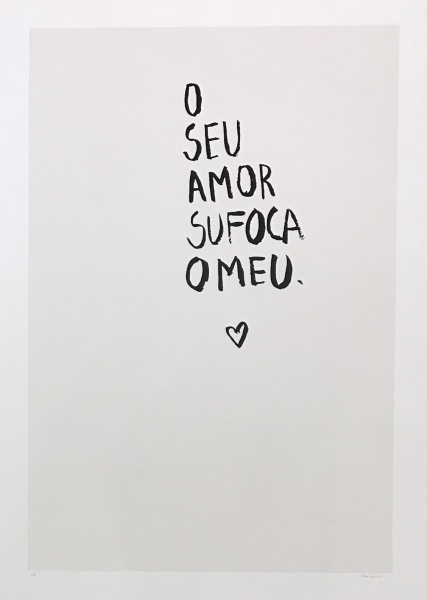 O
SEU
AMOR
SUFOCA
O MEU.